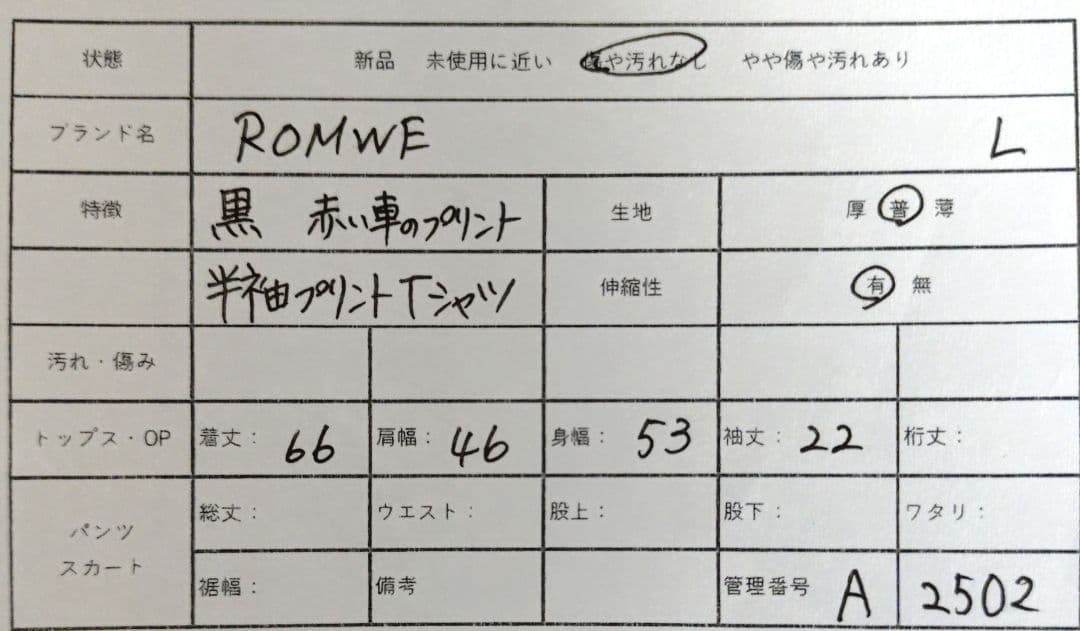 状態 新品 未使用に近い 傷や汚れなし やや傷や汚れあり
ブランド名 ROMWE L
特徴 黒 赤い車のプリント 生地 厚 普 薄
半袖プリントTシャツ 伸縮性 有 無
汚れ・傷み
トップス・OP 着丈: 66 肩幅: 46 身幅: 53 袖丈: 22 裄丈:
パンツ スカート
総丈: ウエスト: 股上: 股下: ワタリ:
裾幅: 備考 管理番号 A 2502